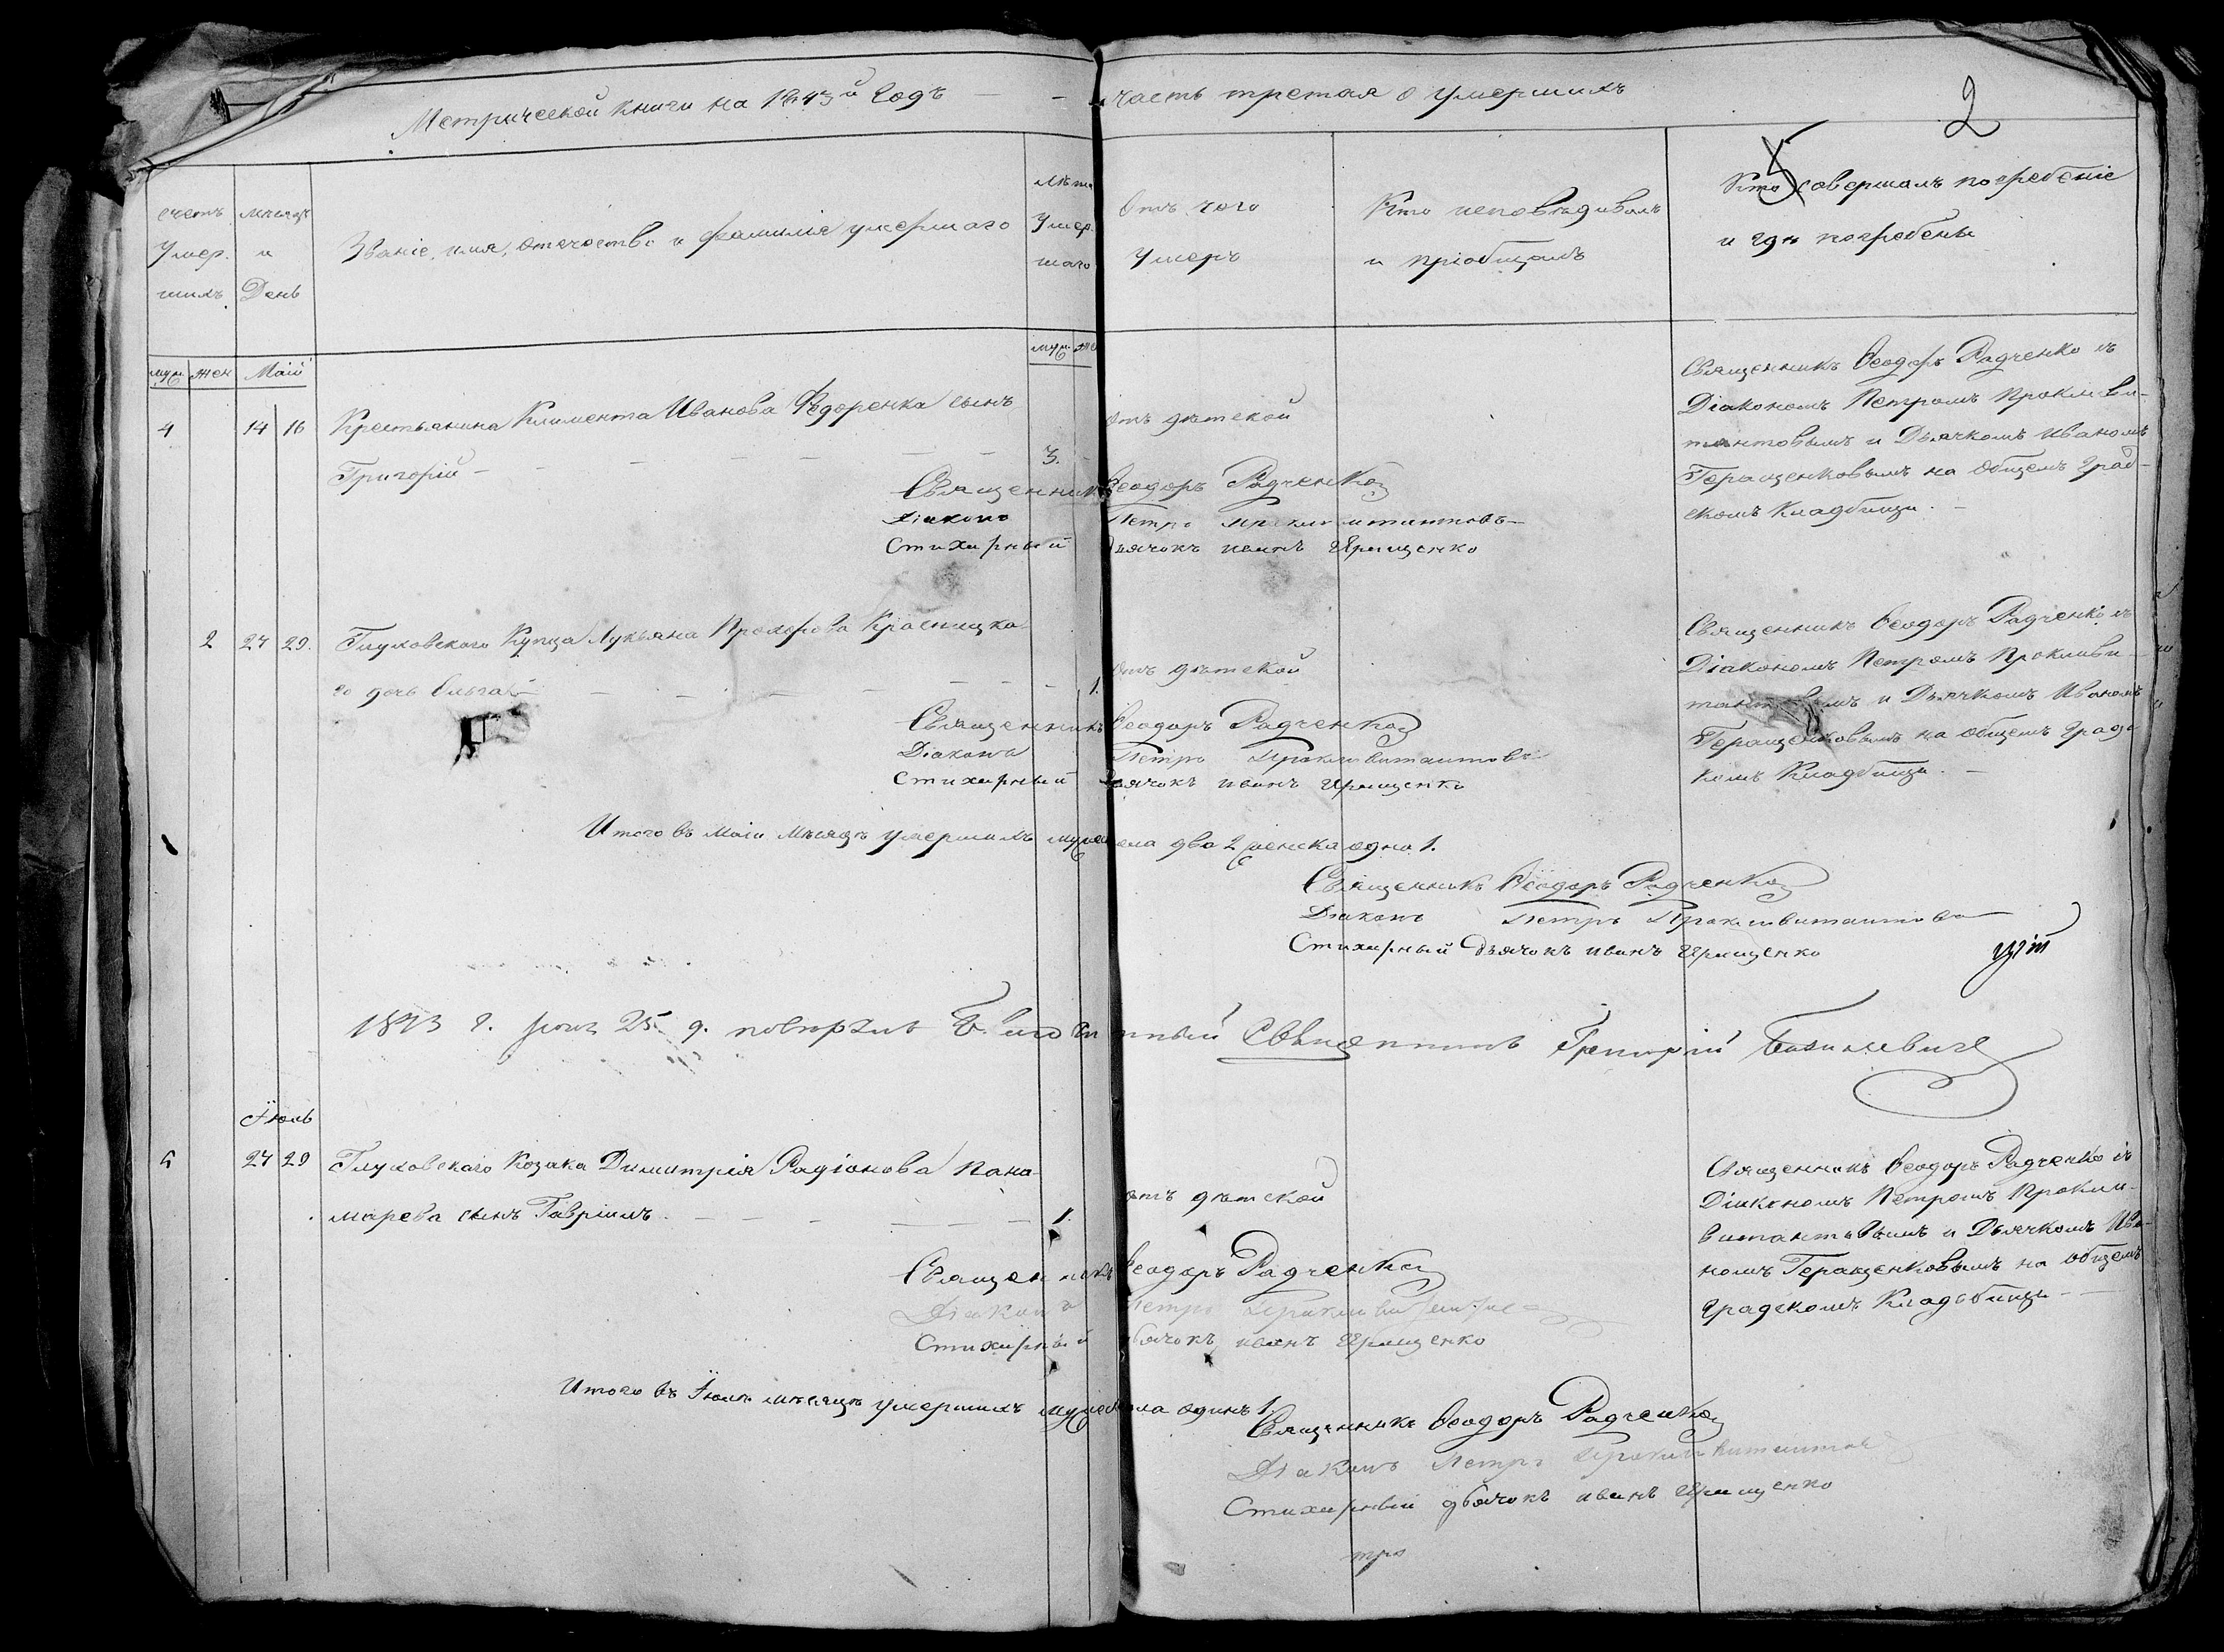 Метрической книги на 1843й Годъ — — часть третая о умершихъ
2
счетъ умершихъ
мужъ
жен
мѣсяцъ и День
Званіе, имя, отечество и фамилія умершаго
Лѣта Умершаго
муж. же
Отъ чего Умеръ
Кто исповѣдивалъ и пріобщалъ
Кто совершалъ погребеніе и гдѣ погребены
Маій
4 14 16 Крестьянина Климента Иванова Федоренка сынъ
Григорій — — — — — — 3.
отъ дѣтской
Священникъ Ѳеодоръ Радченко съ
Діакономъ Петромъ Прокливи-
тантовымъ и Дьячкомъ Иваномъ
Геращенковымъ на общемъ град-
скомъ Кладбищи. —
Священникъ Ѳеодоръ Радченко
Діаконъ Петръ Прокливитантовъ
Стихарный дьячокъ иванъ Ирищенко
2 27 29. Глуховского Купца Лукьяна Прохорова Красницка
го дочь Ольга — — — — — — 1.
отъ дѣтской
Священникъ Ѳеодоръ Радченко съ
Діакономъ Петромъ Прокливи-
и Дьячкомъ Иваномъ
Геращенковымъ на общемъ градс
комъ Кладбищи. —
Священникъ Ѳеодоръ Радченко
Діаконъ Петръ Прокливитантовъ
Стихарный Дьячокъ иванъ Ирищенко
Итого въ маіи мѣсяцѣ умершихъ мужеска два 2 женска одна 1.
Священникъ Ѳеодоръ Радченко
Діаконъ Петръ Прокливитантовъ
Стихарный Дьячокъ иванъ Ирищенко
1843 г. 25 д. Священникъ Григорій
Іюль
5 27 29 Глуховскаго Козака Димитрія Радіонова Пана-
марева сынъ Гавріилъ. — — — — — — 1.
отъ дѣтской
Священникъ Ѳеодоръ Радченко съ
Діакономъ Петромъ Прокли-
витантовымъ и Дьячкомъ Ива-
номъ Геращенковымъ на общемъ
градскомъ Кладбищи — —
Священникъ Ѳеодоръ Радченко
Діаконъ Петръ
Стихарный дьячокъ иванъ Ирищенко
Итого въ Іюлѣ мѣсяцѣ умершихъ мужеска одинъ 1.
Священникъ Ѳеодоръ Радченко
Діаконъ Петръ Прокливитантовъ
Стихарный дьячокъ иванъ Ирищенко